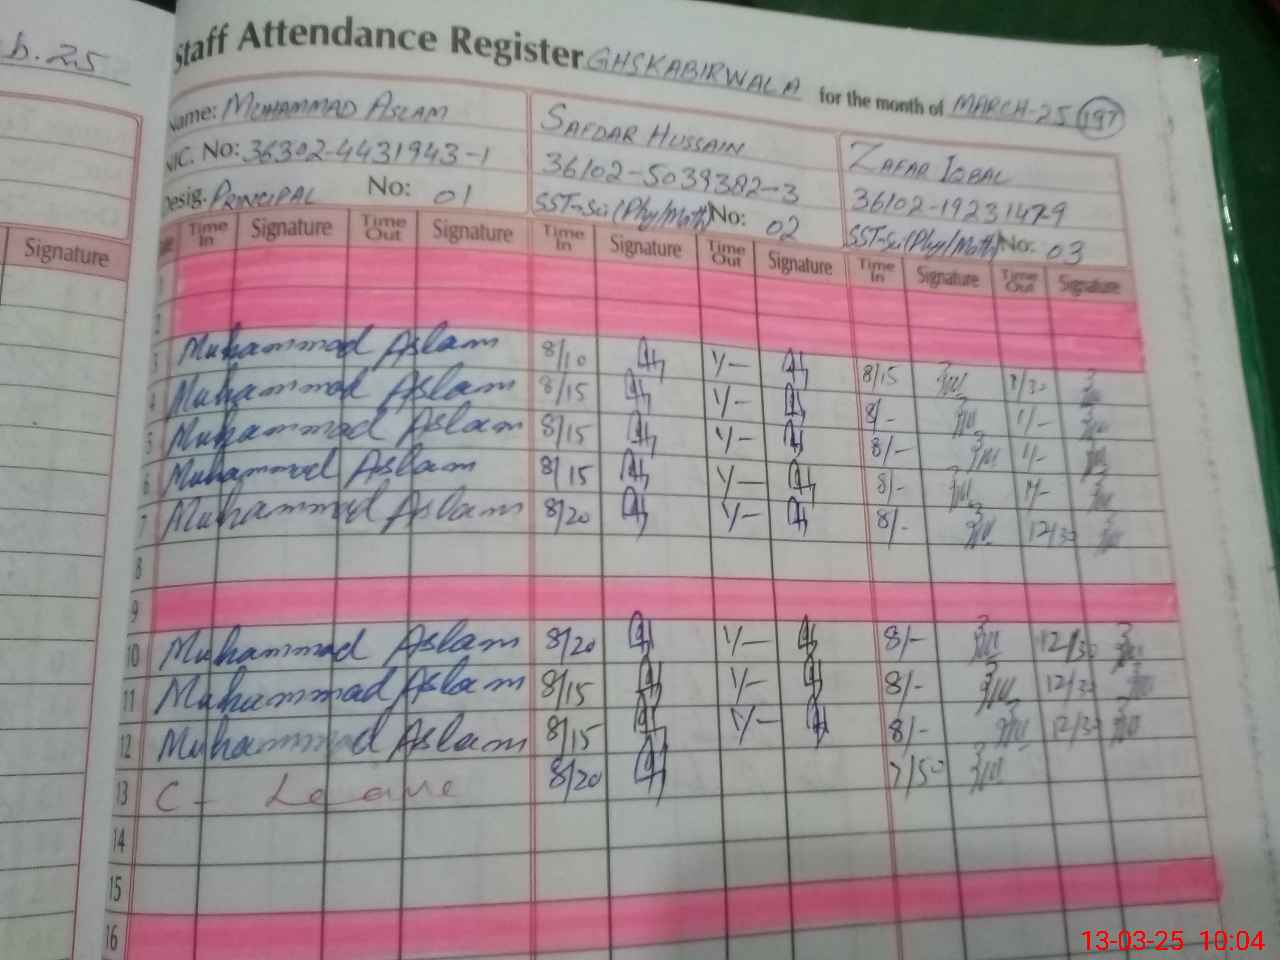 b.25
Signature
Staff Attendance Register GHSKABIRWALA for the month of MARCH-25 197
Name: MUHAMMAD ASLAM SAFDAR HUSSAIN ZAFAR IQBAL
NIC. No: 36302-4431943-1 36102-5039382-3 36102-1923147-9
Desig. PRINCIPAL No: 01 SST-Sci (Phy/Math) No: 02 SST-Sci (Phy/Math) No: 03
Time In Signature Time Out Signature Time In Signature Time Out Signature Time In Signature Time Out Signature
1
2
3 Muhammad Aslam 8/10 1/- 8/15
4 Muhammad Aslam 8/15 1/- 8/- 1/-
5 Muhammad Aslam 8/15 1/- 8/- 1/-
6 Muhammad Aslam 8/15 1/- 8/- 1/-
7 Muhammad Aslam 8/20 1/- 8/- 12/30
8
9
10 Muhammad Aslam 8/20 1/- 8/- 12/30
11 Muhammad Aslam 8/15 1/- 8/- 12/30
12 Muhammad Aslam 8/15 1/- 8/- 12/30
13 C - Leave 8/20 7/50
14
15
16
13-03-25 10:04